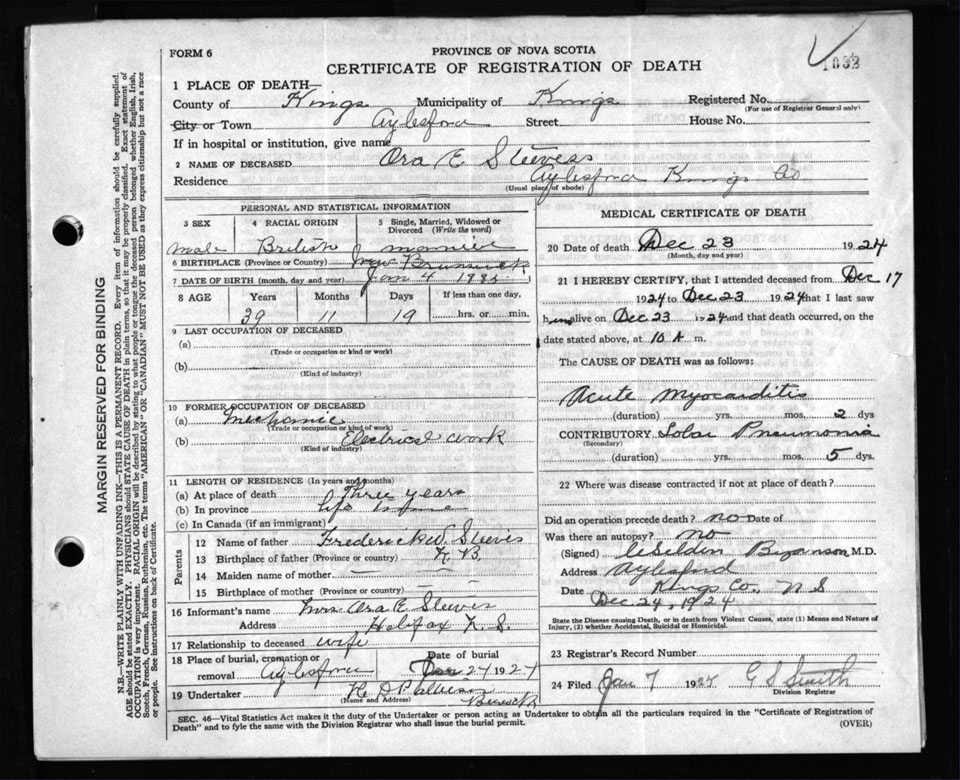 FORM 6
PROVINCE OF NOVA SCOTIA
CERTIFICATE OF REGISTRATION OF DEATH
1 PLACE OF DEATH—
County of Kings Municipality of Kings Registered No.
(For use of Registrar General only)
City or Town Aylesford Street House No.
If in hospital or institution, give name
2 NAME OF DECEASED Ora E Steeves
Residence Aylesford Kings Co
(Usual place of abode)
PERSONAL AND STATISTICAL INFORMATION
3 SEX 4 RACIAL ORIGIN 5 Single, Married, Widowed or Divorced (Write the word)
male British married
6 BIRTHPLACE (Province or Country) New Brunswick
7 DATE OF BIRTH (month, day and year) Jan 4 1885
8 AGE Years Months Days If less than one day,
39 11 19 hrs. or min.
9 LAST OCCUPATION OF DECEASED
(a)
(Trade or occupation or kind or work)
(b)
(Kind of industry)
10 FORMER OCCUPATION OF DECEASED
(a) Mechanic
(Trade or occupation or kind of work)
(b) Electrical work
(Kind of industry)
11 LENGTH OF RESIDENCE (In years and months)
(a) At place of death Three years
(b) In province
(c) In Canada (if an immigrant)
Parents
12 Name of father Frederick W. Steeves
13 Birthplace of father (Province or country) N B
14 Maiden name of mother — —
15 Birthplace of mother (Province or country) — —
16 Informant's name Mrs Ora E Steeves
Address Halifax N. S.
17 Relationship to deceased wife
18 Place of burial, cremation or removal Aylesford Date of burial 1924
19 Undertaker
(Name and Address) Berwick
MEDICAL CERTIFICATE OF DEATH
20 Date of death Dec 23 1924
(Month, day and year)
21 I HEREBY CERTIFY, that I attended deceased from Dec 17
1924 to Dec 23 1924 that I last saw
him alive on Dec 23 1924 and that death occurred, on
date stated above, at 10 A m.
The CAUSE OF DEATH was as follows:
Acute Myocarditis
(duration) yrs. mos. 2 dys
CONTRIBUTORY Lobar Pneumonia
(Secondary)
(duration) yrs. mos. 5 dys.
22 Where was disease contracted if not at place of death?
Did an operation precede death? no Date of
Was there an autopsy? no
(Signed) M.D.
Address Aylesford
Kings Co, N S
Date Dec 24, 1924
State the Disease causing Death, or in death from Violent Causes, state (1) Means and Nature of
Injury, (2) whether Accidental, Suicidal or Homicidal.
23 Registrar's Record Number
24 Filed Jan 7 G S Smith
Division Registrar
SEC. 46—Vital Statistics Act makes it the duty of the Undertaker or person acting as Undertaker to obtain all the particulars required in the "Certificate of Registration of
Death" and to fyle the same with the Division Registrar who shall issue the burial permit.
(OVER)
MARGIN RESERVED FOR BINDING
N.B.—WRITE PLAINLY WITH UNFADING INK—THIS IS A PERMANENT RECORD. Every item of information should be carefully supplied.
AGE should be stated EXACTLY. PHYSICIANS should STATE CAUSE OF DEATH in plain terms, so that it may be properly classified. Exact statement of
OCCUPATION is very important. RACIAL ORIGIN will be described by stating to what people or tongue the deceased person belonged whether English, Irish,
Scotch, French, German, Russian, Ruthenian, etc. The terms "AMERICAN" or "CANADIAN" MUST NOT BE USED as they express citizenship but not a race
or people. See instructions on back of Certificate.